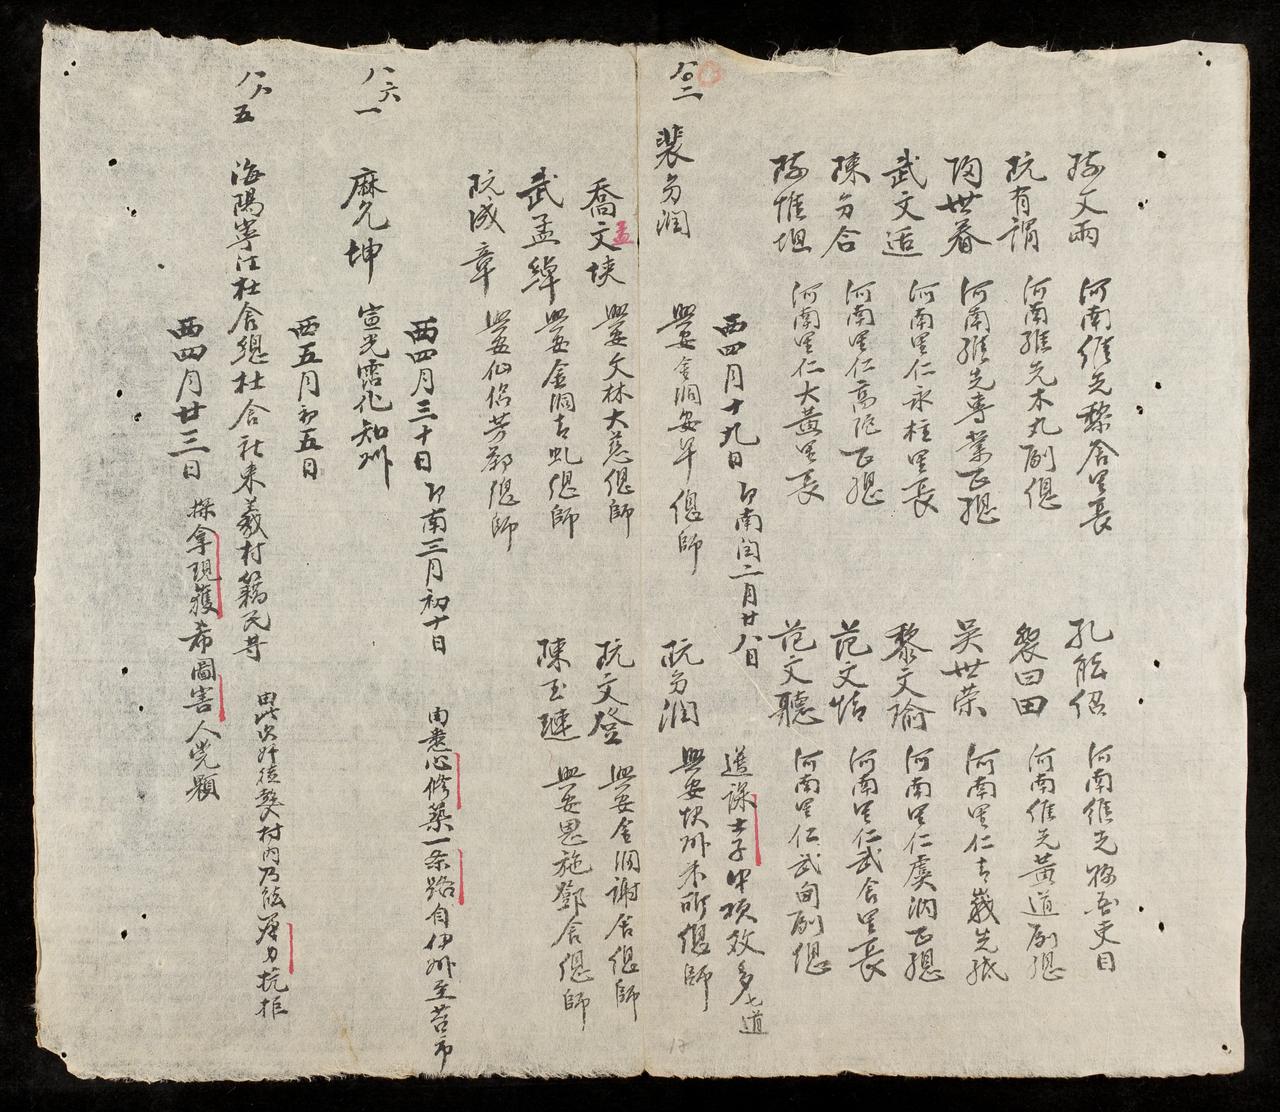 阮文雨 河南維先黎舍里長 孔能紹 河南維先務吾吏目
阮有謂 河南維先木丸副總 裴曰田 河南維先黃道副總
陶世春 河南維先專業正總 吳世榮 河南里仁古嵗先紙
武文适 河南里仁永柱里長 黎文瑜 河南里仁虞汭正總
陳勻合 河南里仁高陀正總 范文恬 河南里仁武舍里長
阮惟坦 河南里仁大黃里長 范文聽 河南里仁武甸副總
西四月十九日即南閏二月廿八日 造課士子中項效多七道
八〇二 裴勻潤 興安金洞安羊總師 阮勻潤 興安快州未所總師
喬文埉 孟 興安文林大慈總師 阮文登 興安金洞謝舍總師
武孟綽 興安金洞古虬總師 陳玉璉 興安恩施鄧舍總師
阮成章 興安仙侶芳鄰總師
西四月三十日即南三月初十日 由悉心修築一条路自伊州至苔市
八六一 麻允坤 宣光霑化知州
西五月初五日
八八五 海陽寧江杜舍總杜舍社來義村籍民等 毘次奸徒襲村內乃能彈力抗拒
西四月廿三日 探拿現獲希圖害人党顆